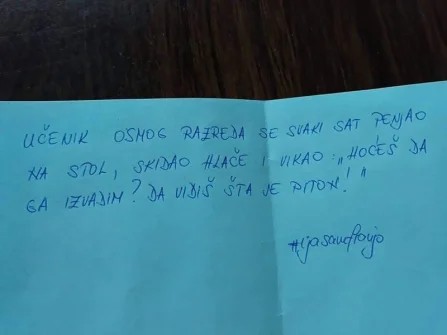 UČENIK OSMOG RAZREDA SE SVAKI SAT PENJAO
NA STOL, SKIDAO HLAČE I VIKAO: „HOĆEŠ DA
GA IZVADIM? DA VIDIŠ ŠTA JE PITON!"